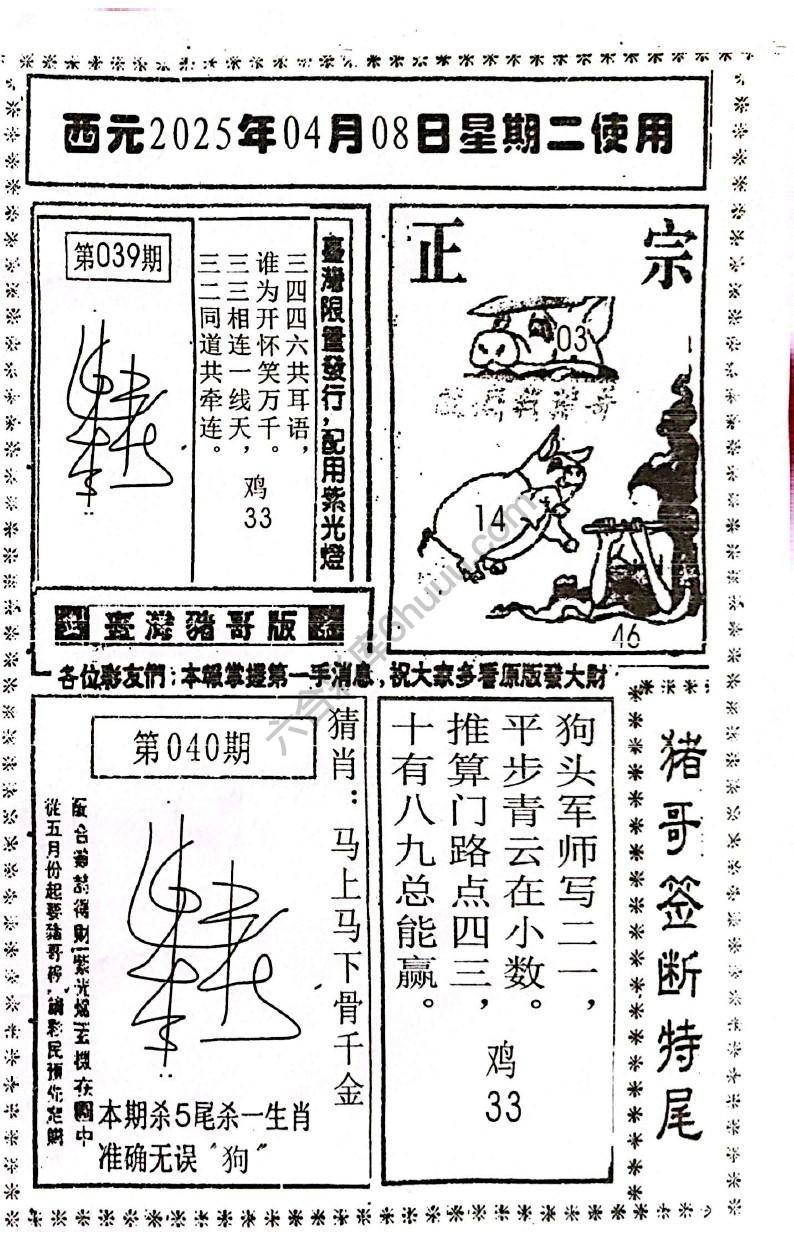 西元2025年04月08日星期二使用
第039期
三四四六共耳语，
谁为开怀笑万千。
三三相连一线天，
三二同道共牵连。
鸡
33
臺灣限量發行，配用紫光燈
正宗
03
14
46
臺灣豬哥版
各位彩友們：本報掌握第一手消息，祝大家多看原版發大財
第040期
猜肖：马上马下骨千金
從五月份起要豬哥
本期杀5尾杀一生肖
准确无误“狗”
狗头军师写二一，
平步青云在小数。
推算门路点四三，
十有八九总能赢。
鸡
33
猪哥签断特尾
六合
6huuu.com